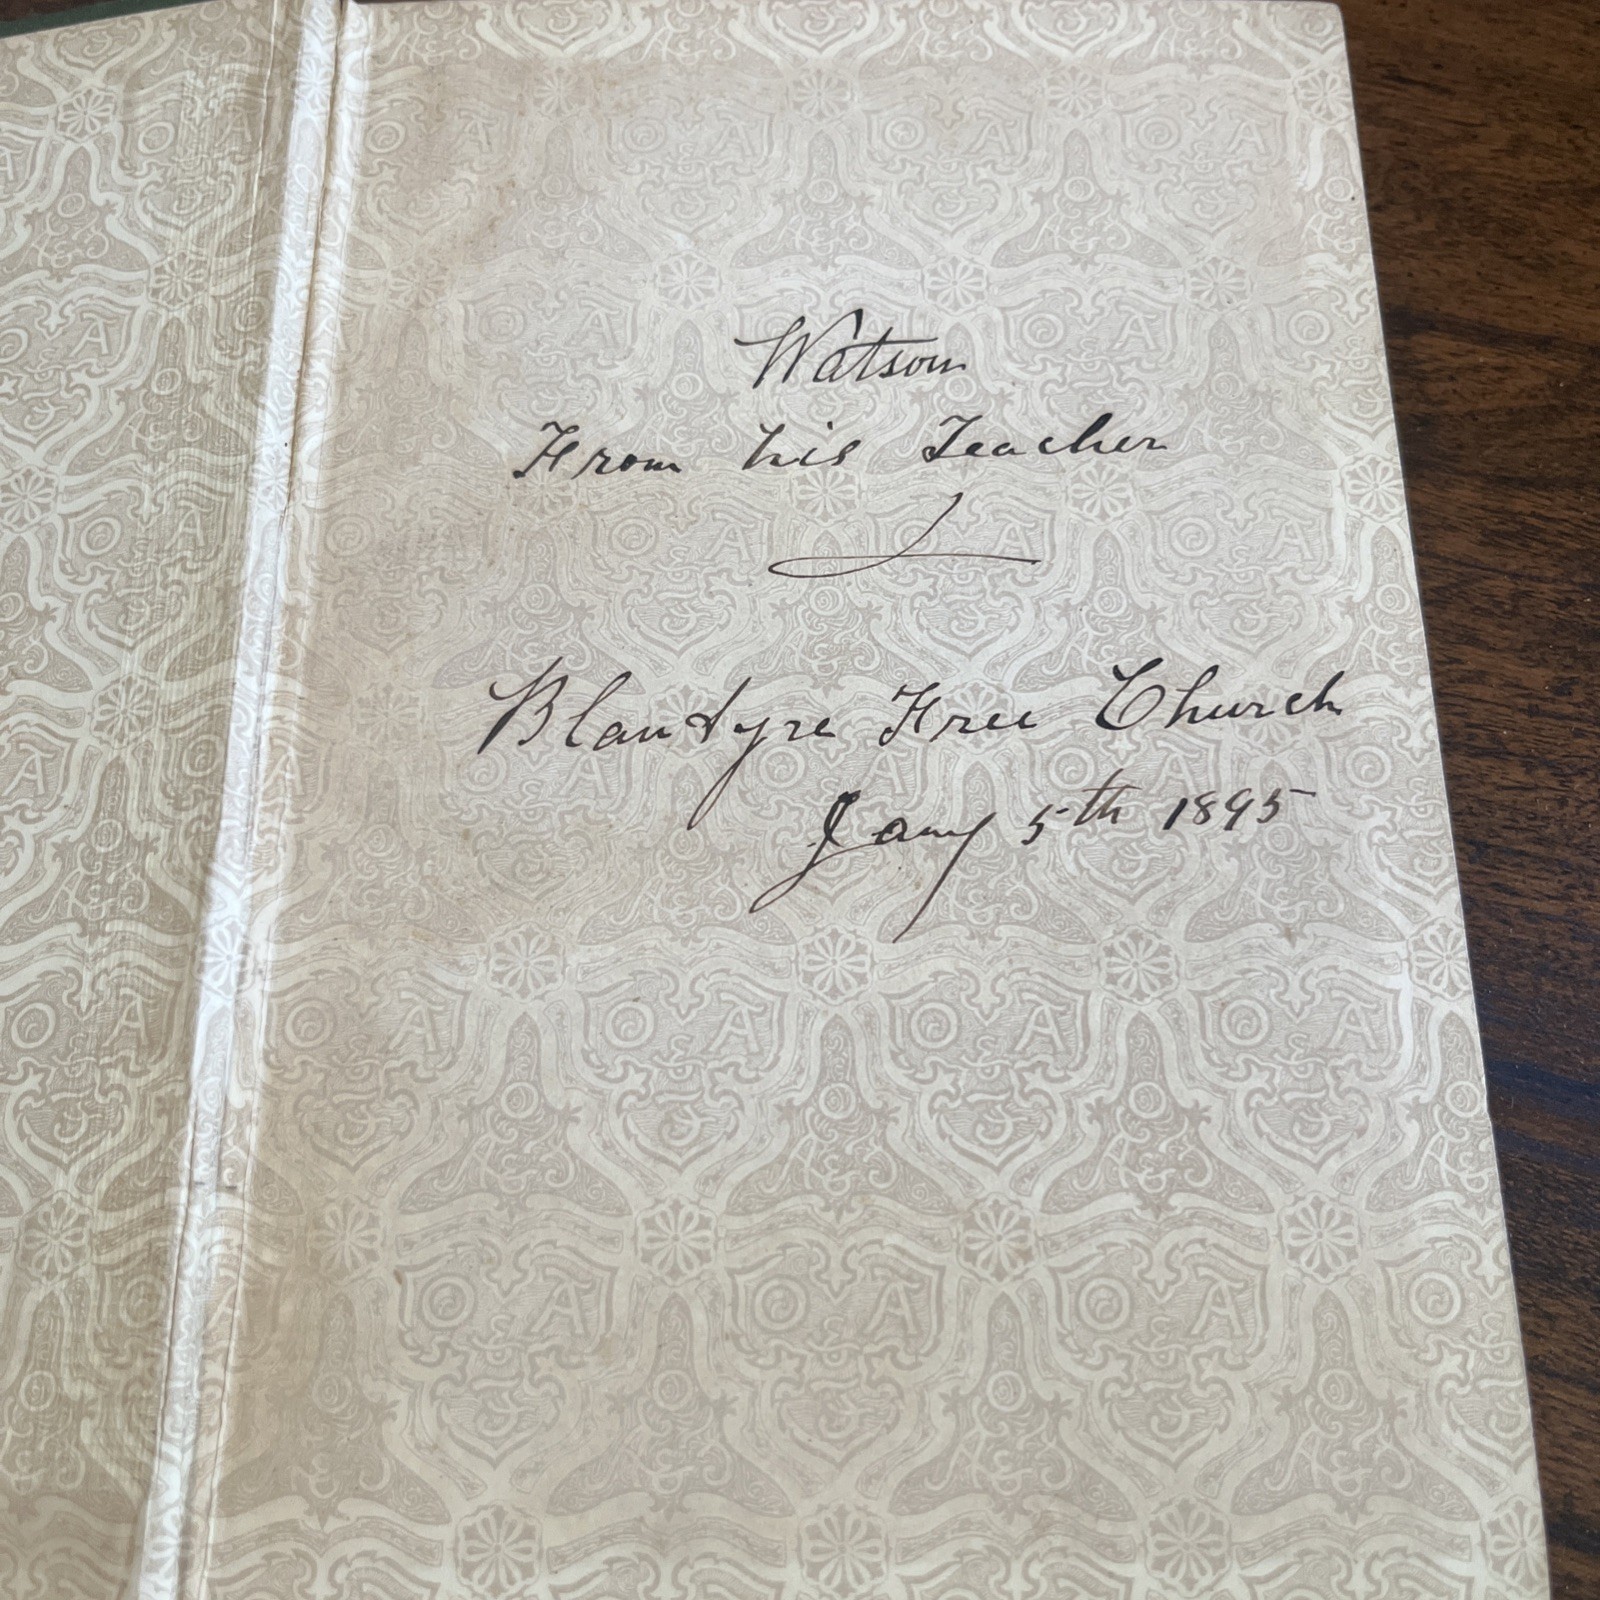 Watson
From his Teacher
Blantyre Free Church
Jany 5th 1895